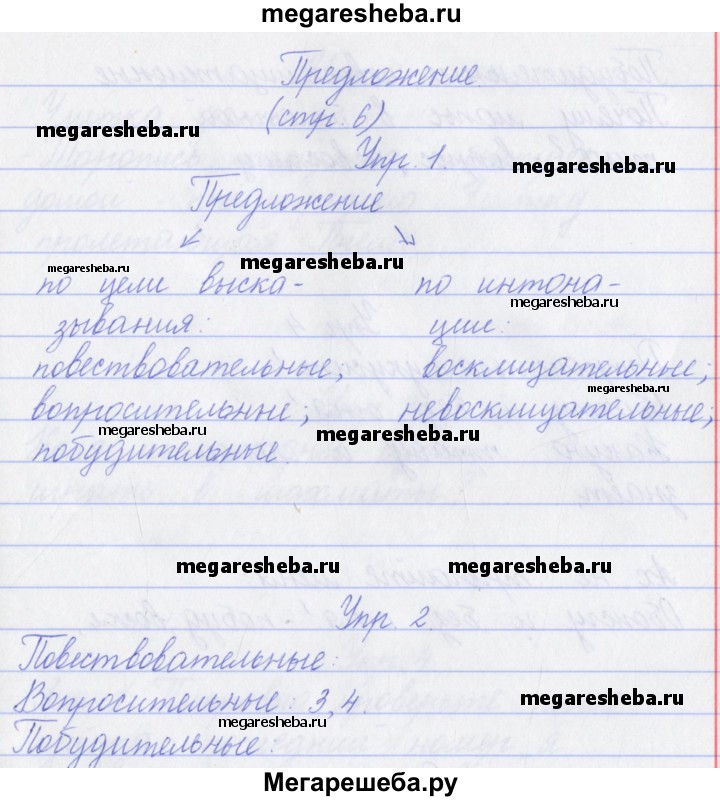 megaresheba.ru
Предложение.
(стр. 6)
megaresheba.ru
Упр. 1.
megaresheba.ru
Предложение
megaresheba.ru
megaresheba.ru
по цели выска- по интона-
megaresheba.ru
зывания: ции:
повествовательные; восклицательные;
megaresheba.ru
вопросительные; невосклицательные;
megaresheba.ru
megaresheba.ru
побудительные.
megaresheba.ru
megaresheba.ru
Упр. 2.
Повествовательные:
Вопросительные: 3, 4.
megaresheba.ru
megaresheba.ru
Побудительные:
Мегарешеба.ру